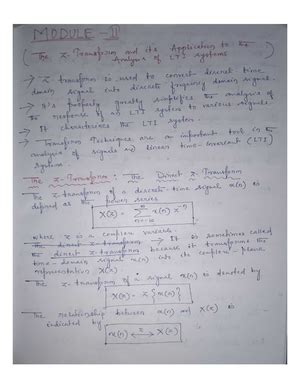 MODULE - II
(The Z-Transform and its Application to the
Analysis of LTI systems
→ Z transform is used to convert discrete time
domain signal into discrete frequency domain signal.
→ It's property greatly simplifies the analysis of
the response of an LTI system to various signals.
→ It characterises the LTI system.
→ Transform Techniques are an important tool in the
analysis of signals and linear time-invariant (LTI)
system.
The Z-Transform : The Direct Z-Transform
The Z-transform of a discrete-time signal x(n) is
defined as the power series
X(z) = ∑ x(n) z⁻ⁿ
where z is a complex variable.
the direct z-transform → It is sometimes called
the direct z-transform because it transforms the
time-domain signal x(n) into its complex-plane
representation X(z).
→ The z-transform of a signal x(n) is denoted by
X(z) = z{x(n)}
→ The relationship between x(n) and X(z) is
indicated by
x(n) ⟷ X(z)